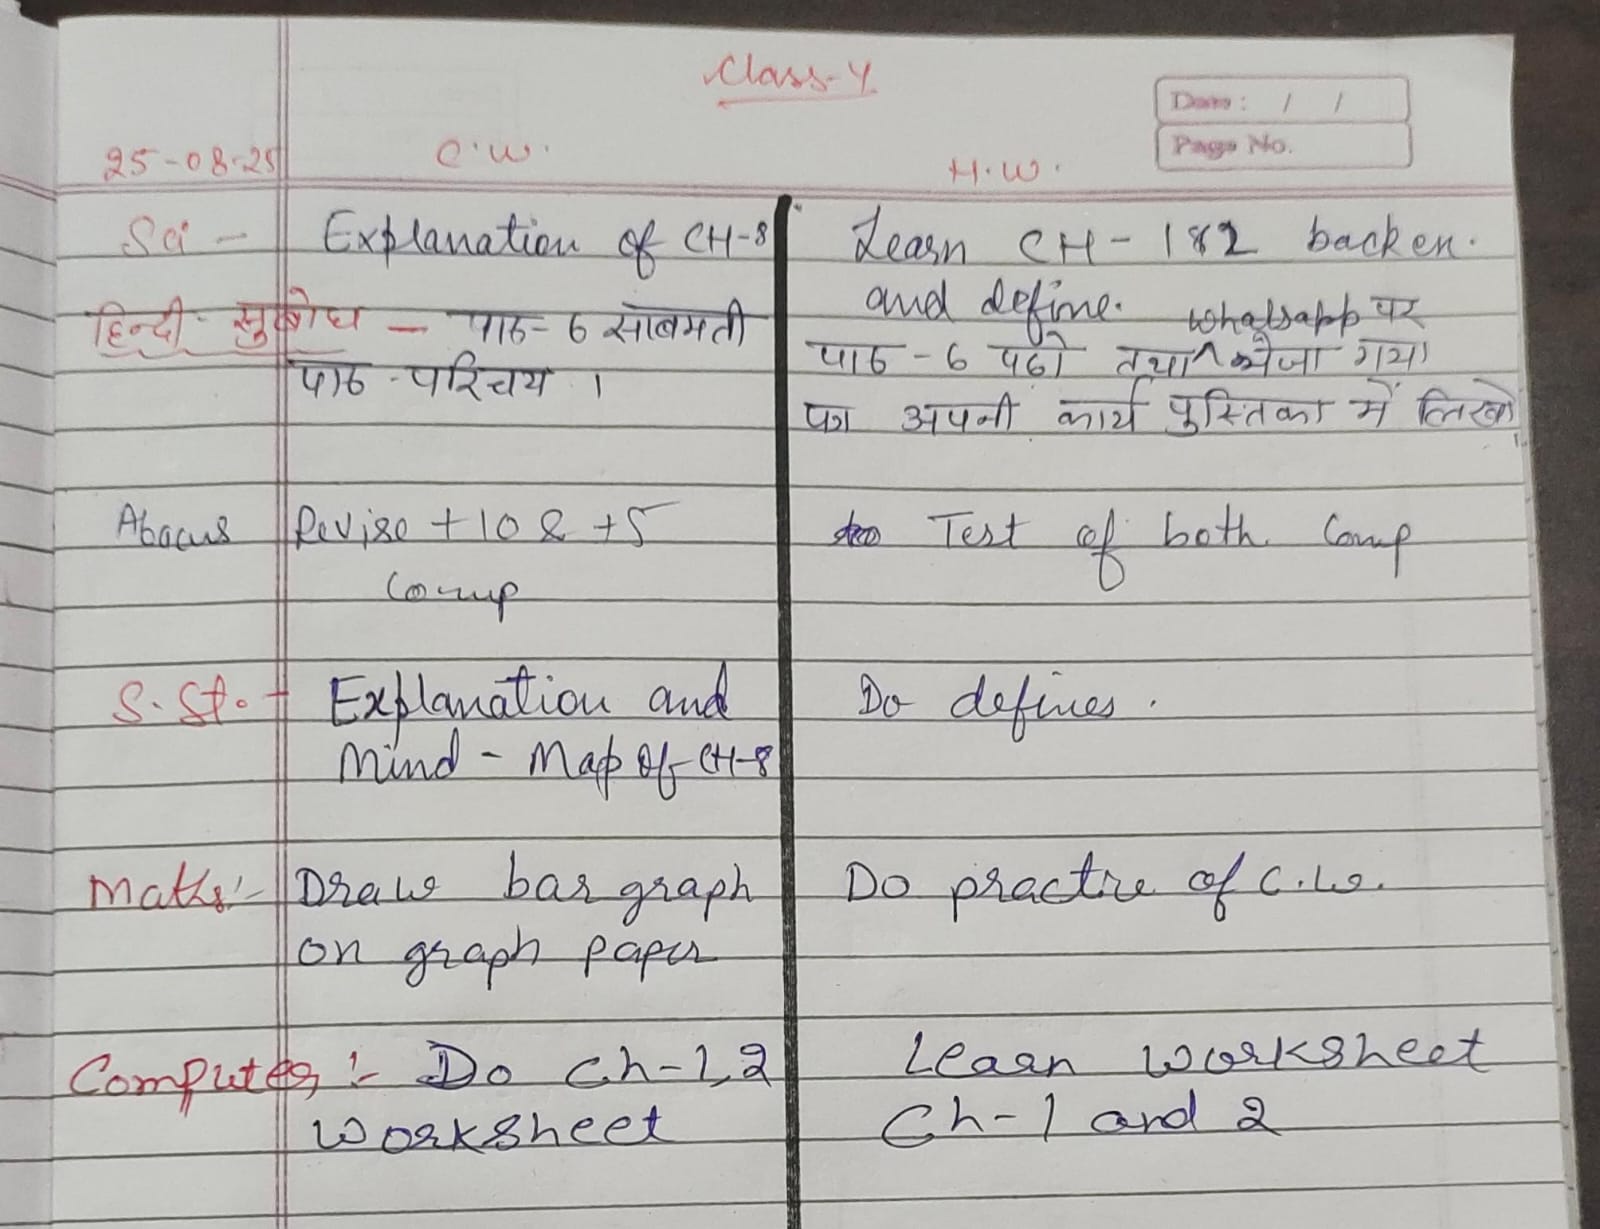 Class-4
Date: / /
Page No.
25-08-25 C.W. H.W.
Sci - Explanation of CH-8 Learn CH-1&2 back ex.
and define.
हिन्दी - सुबोध - पाठ-6 साबमती whatsapp पर
पाठ-6 पढो तथा ^ भेजा गया
पाठ-परिचय ।
अपनी कार्य पुस्तिका में लिखो।
Abacus Revise +10 & +5 Test of both Comp
Comp
S.St. - Explanation and Do defines.
Mind-Map of CH-8
Maths:- Draw bar graph Do practice of C.W.
on graph paper
Computer :- Do Ch-1,2 Learn worksheet
worksheet Ch-1 and 2